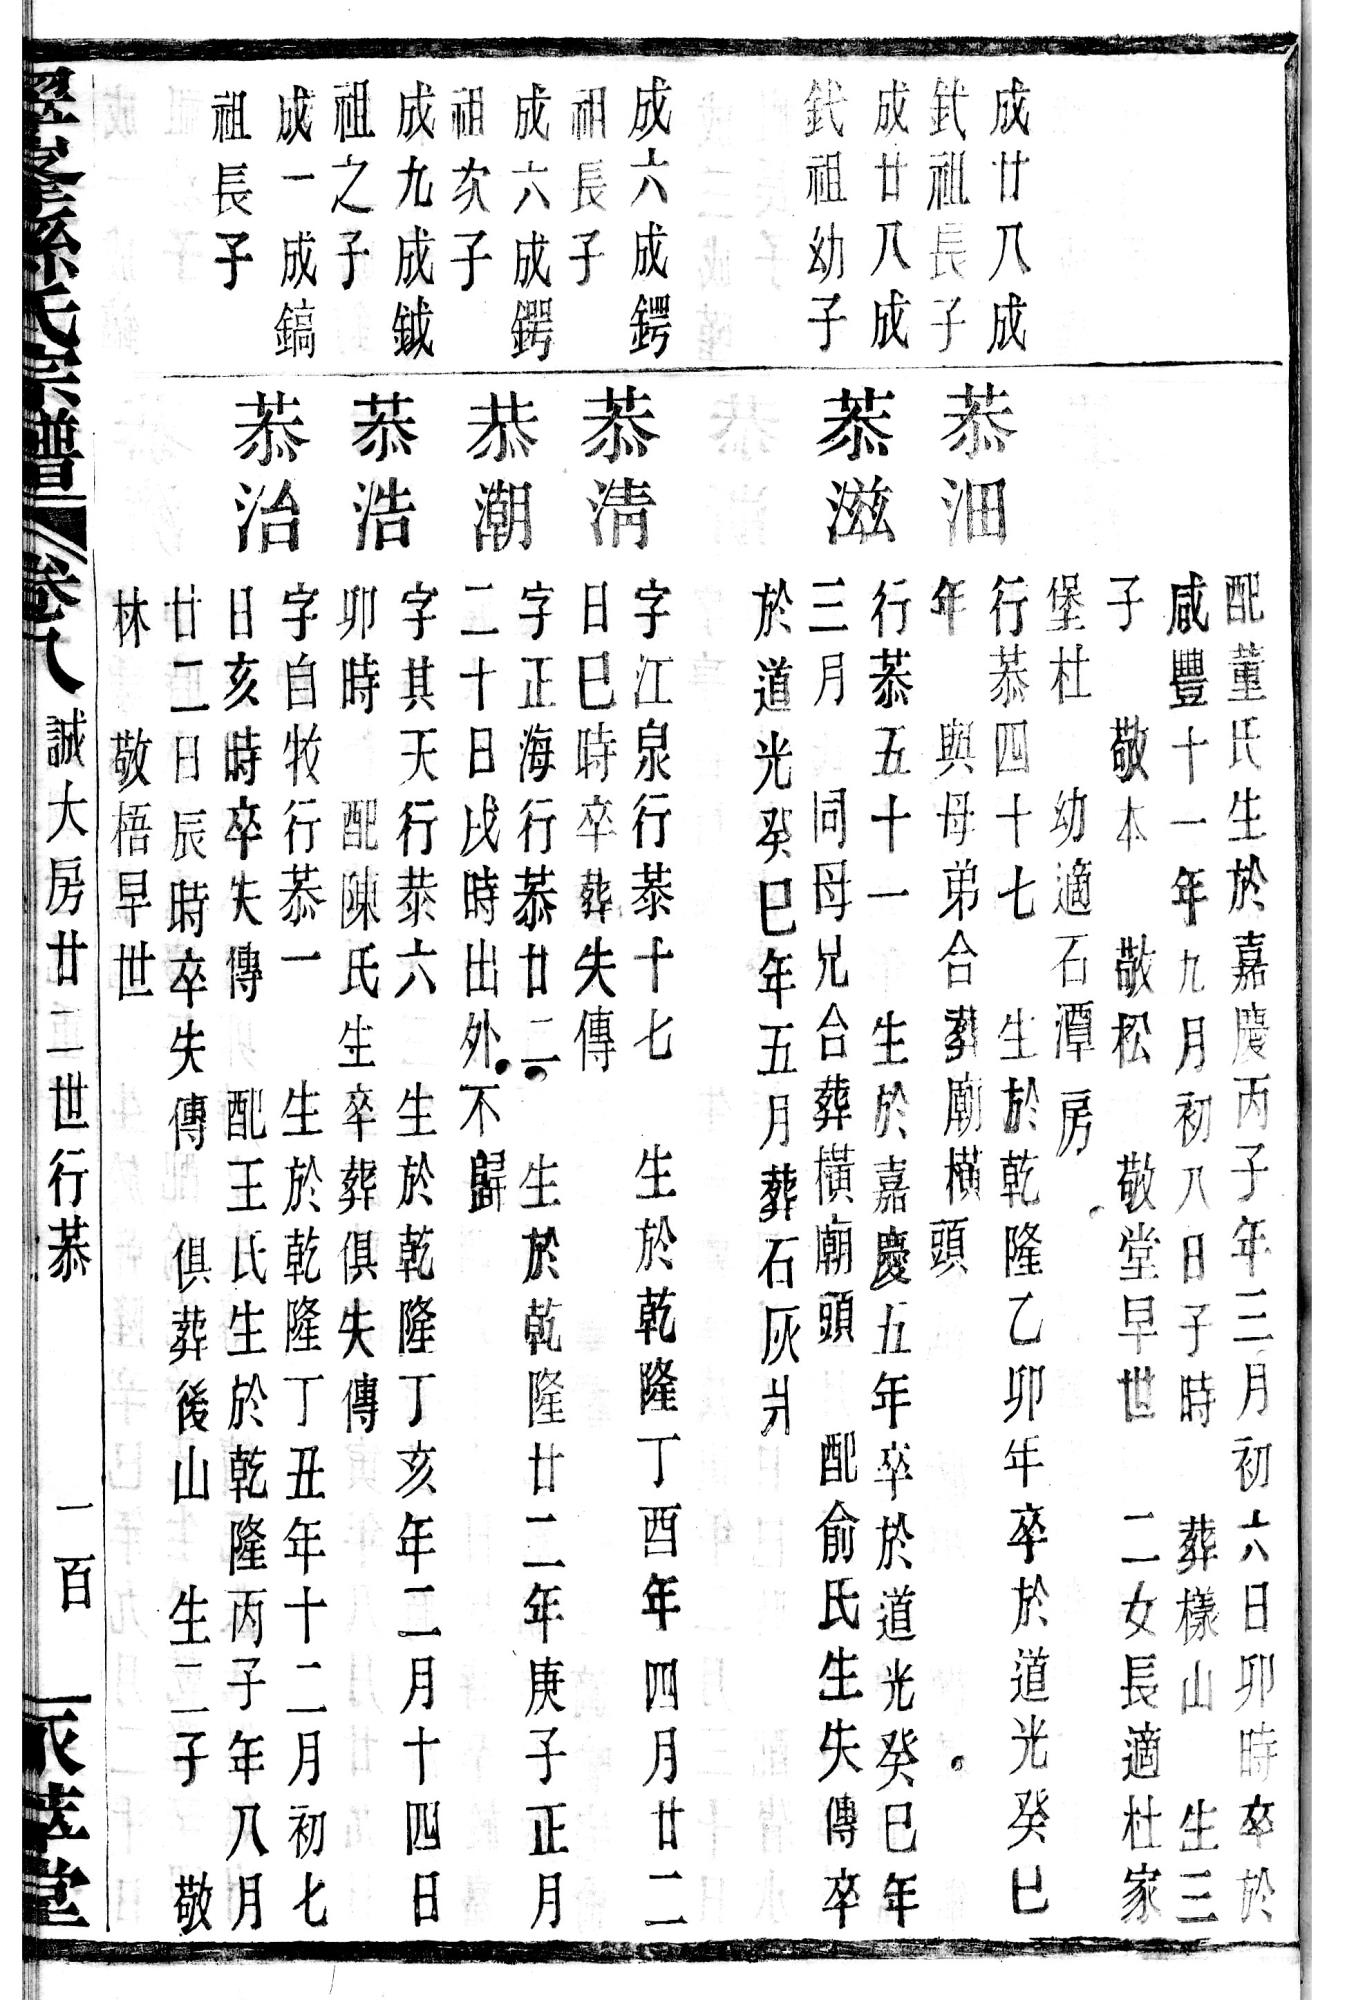 配董氏生於嘉慶丙子年三月初六日卯時卒於
咸豐十一年九月初八日子時　葬樣山　生三
子　敬本　敬松　敬堂早世　二女長適杜家
堡杜　幼適石潭房
成廿八成
鈛祖長子
恭沺
行恭四十七　生於乾隆乙卯年卒於道光癸巳
年　與母弟合葬廟橫頭
成廿八成
鈛祖幼子
恭滋
行恭五十一　生於嘉慶五年卒於道光癸巳年
三月　同母兄合葬橫廟頭　配俞氏生失傳卒
於道光癸巳年五月葬石灰爿
成六成鍔
祖長子
恭淸
字江泉行恭十七　生於乾隆丁酉年四月廿二
日巳時卒葬失傳
成六成鍔
祖次子
恭潮
字正海行恭廿二　生於乾隆廿二年庚子正月
二十日戌時出外不歸
成九成鉞
祖之子
恭浩
字其天行恭六　生於乾隆丁亥年二月十四日
卯時　配陳氏生卒葬俱失傳
成一成鎬
祖長子
恭治
字自牧行恭一　生於乾隆丁丑年十二月初七
日亥時卒失傳　配王氏生於乾隆丙子年八月
廿二日辰時卒失傳　俱葬後山　生二子　敬
林　敬梧早世
孫氏宗譜
卷八
誠大房廿二世行恭
一百
萃堂